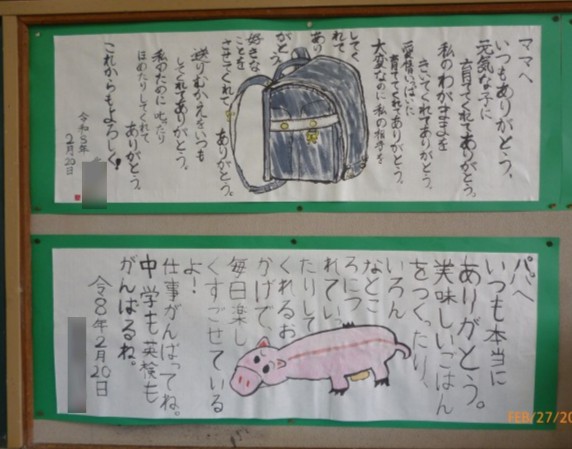 ママへ
いつもありがとう。
元気な子に
育ててくれてありがとう。
私のわがままを
きいてくれてありがとう。
愛情いっぱいに
育ててくれてありがとう。
大変なのに私の相手を
してく
れて
あり
がとう
好きな
ことを
させてくれて
ありがとう。
送りむかえをいつも
してくれてありがとう。
私のために叱ったり
ほめたりしてくれて
ありがとう。
これからもよろしく!
令和8年
2月20日
パパへ
いつも本当に
ありがとう。
美味しいごはん
をつくったり、
いろん
なとこ
ろにつ
れてい
たりして
くれるお
かげで、
毎日楽し
くすごせている
よ!
仕事がんばってね。
中学も英検も
がんばるね。
令8年2月20日
FEB/27/20